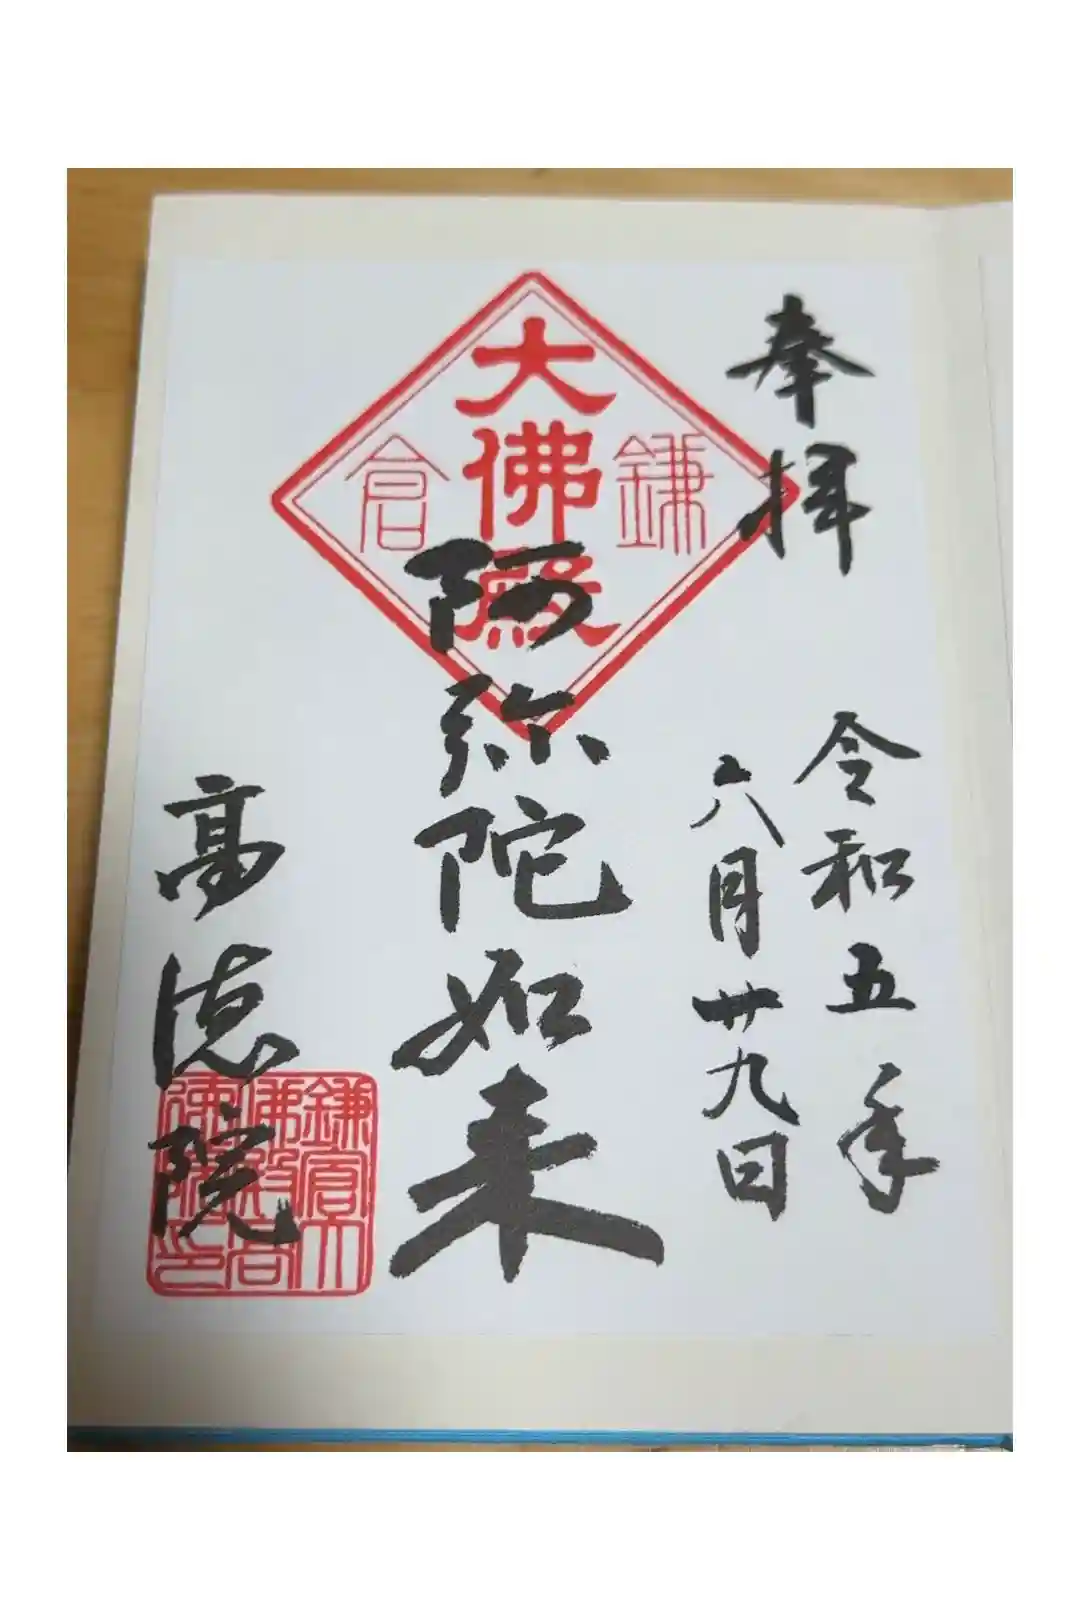 奉拝
令和五年
六月廿九日
鎌倉
大佛殿
阿弥陀如来
高徳院
鎌倉大
佛殿高
徳院印